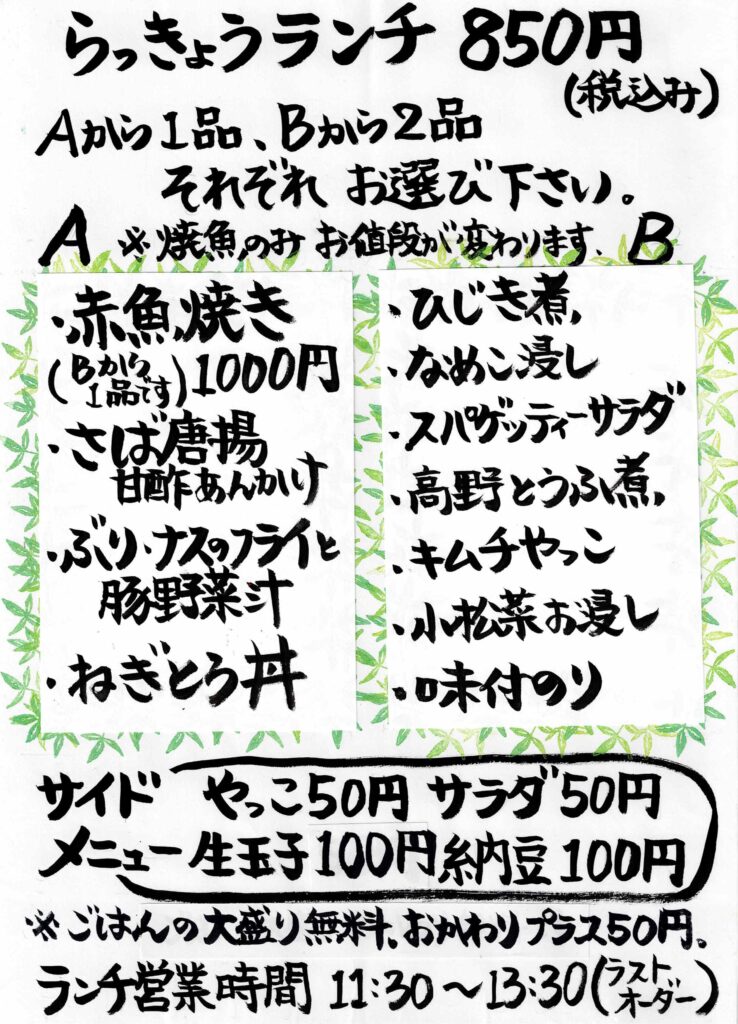 らっきょうランチ 850円
(税込み)
Aから1品、Bから2品
それぞれ お選び下さい。
A ※焼魚のみ お値段が変わります。 B
・赤魚焼き
(Bから1品です) 1000円
・さば唐揚
甘酢あんかけ
・ぶり・ナスのフライと
豚野菜汁
・ねぎとろ丼
・ひじき煮
・なめこ浸し
・スパゲッティーサラダ
・高野とうふ煮
・キムチやっこ
・小松菜お浸し
・味付のり
サイド やっこ50円 サラダ50円
メニュー 生玉子100円 納豆100円
※ごはんの大盛り無料、おかわりプラス50円。
ランチ営業時間 11:30〜13:30(ラストオーダー)